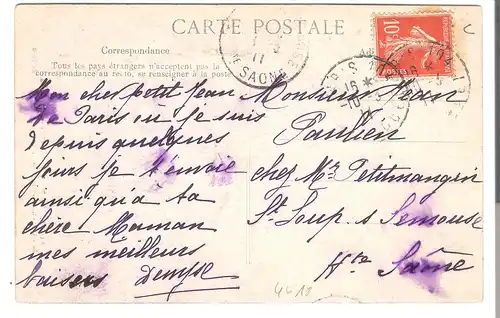 CARTE POSTALE
Correspondance
Tous les pays étrangers n'acceptent pas la
correspondance au recto, se renseigner à la poste
Mon cher petit Jean
De Paris où je suis
depuis quelques
jours je t'envoie
ainsi qu'à ta
chère Maman
mes meilleurs
baisers Denyse
Monsieur Jean
Paulien
chez Mr Petitmangin
St Loup s Semouse
Hte Saône
4618
10
11
SAONE